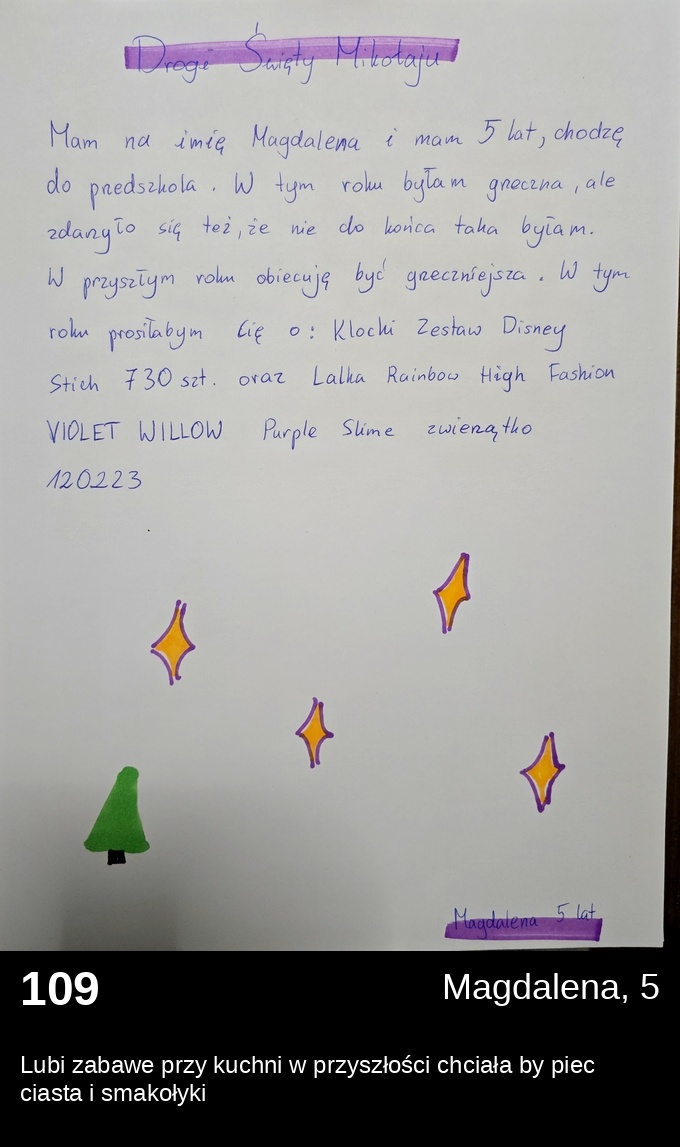 Drogi Święty Mikołaju
Mam na imię Magdalena i mam 5 lat, chodzę
do przedszkola. W tym roku byłam grzeczna, ale
zdarzyło się też, że nie do końca taka byłam.
W przyszłym roku obiecuję być grzeczniejsza. W tym
roku prosiłabym Cię o: Klocki Zestaw Disney
Stich 730 szt. oraz Lalka Rainbow High Fashion
VIOLET WILLOW Purple Slime zwierzątko
120223
Magdalena 5 lat
109
Magdalena, 5
Lubi zabawe przy kuchni w przyszłości chciała by piec
ciasta i smakołyki